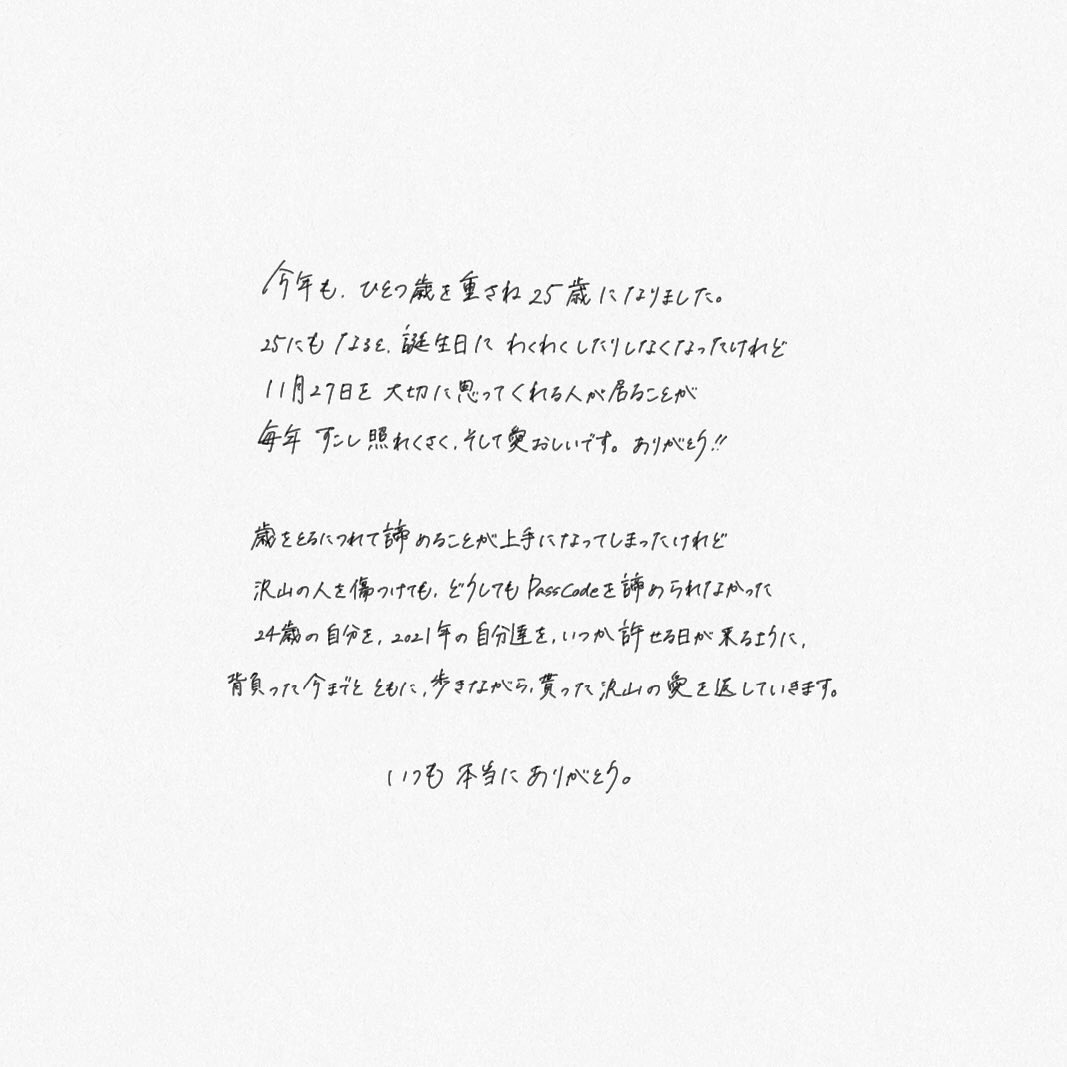 今年も、ひとつ歳を重さね25歳になりました。
25にもなると、誕生日に わくわくしたりしなくなったけれど
11月27日を 大切に思ってくれる人が居ることが
毎年 すこし照れくさく、そして愛おしいです。ありがとう!!
歳をとるにつれて諦めることが上手になってしまったけれど
沢山の人を傷つけても、どうしてもPassCodeを諦められなかった
24歳の自分を、2021年の自分達を、いつか許せる日が来るように、
背負った今までとともに、歩きながら、貰った沢山の愛を返していきます。
いつも 本当に ありがとう。